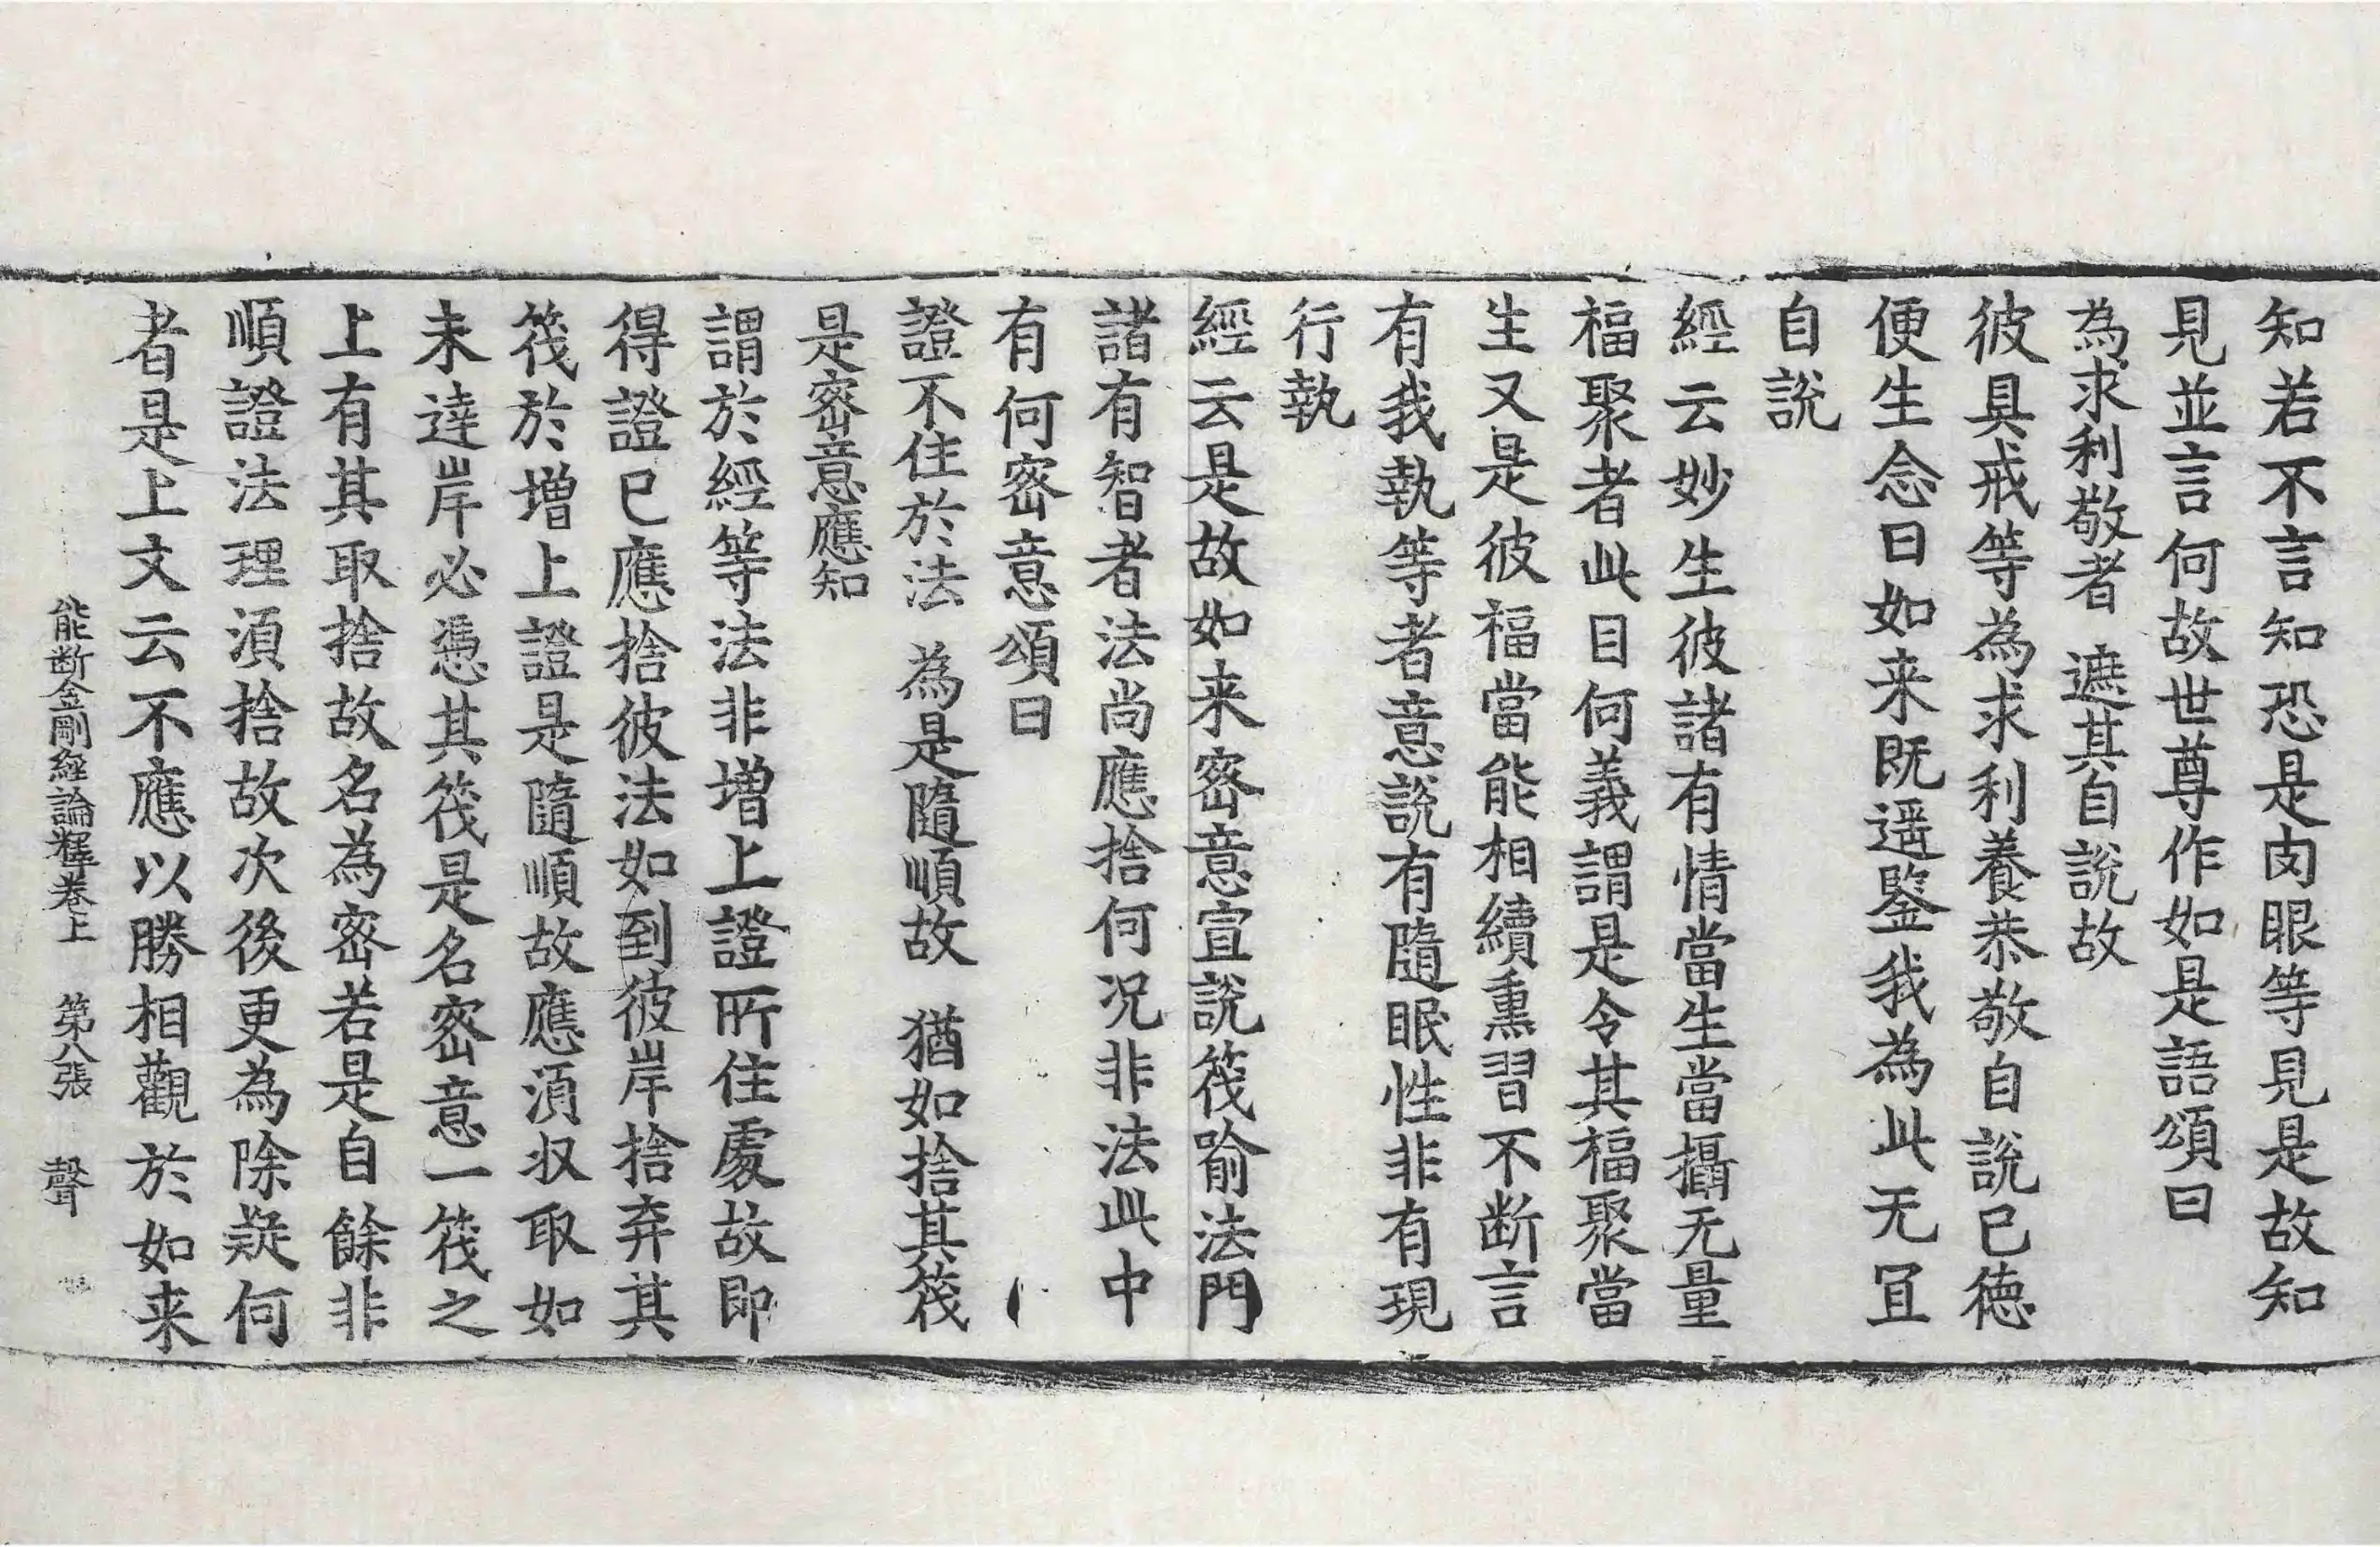 知若不言知恐是肉眼等見是故知
見並言何故世尊作如是語頌曰
為求利敬者 遮其自說故
彼具戒等為求利養恭敬自說已德
便生念曰如来既遥鑒我為此无冝
自說
經云妙生彼諸有情當生當攝无量
福聚者此目何義謂是令其福聚當
生又是彼福當能相續熏習不断言
有我執等者意說有隨眠性非有現
行執
經云是故如来密意宣說筏喻法門
諸有智者法尚應捨何况非法此中
有何密意頌曰
證不住於法 為是隨順故 猶如捨其筏
是密意應知
謂於經等法非増上證所住處故即
得證已應捨彼法如到彼岸捨弃其
筏於増上證是隨順故應湏収取如
未達岸必憑其筏是名密意一筏之
上有其取捨故名為密若是自餘非
順證法理湏捨故次後更為除疑何
者是上文云不應以勝相觀於如来
能断金剛經論釋卷上 第八張 聲